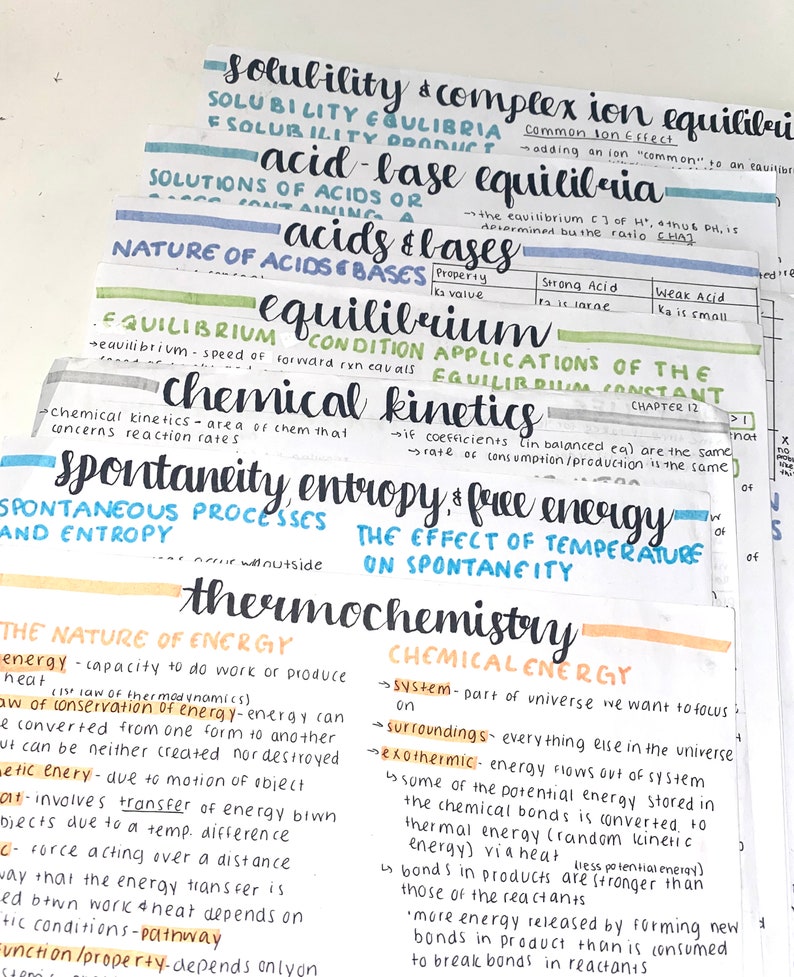 solubility & complex ion equilibri
SOLUBILITY EQULIBRIA
& SOLUBILITY PRODUCT
Common Ion Effect
→ adding an ion "common" to an equilibr
acid-base equilibria
SOLUTIONS OF ACIDS OR
BASES CONTAINING A
→ the equilibrium [ ] of H⁺, & thus pH, is
determined by the ratio [HA]
acids & bases
NATURE OF ACIDS & BASES
Property
Strong Acid
Weak Acid
Ka value
Ka is large
Ka is small
equilibrium
EQUILIBRIUM CONDITION
→ equilibrium - speed of forward rxn equals
APPLICATIONS OF THE
EQUILIBRIUM CONSTANT
chemical kinetics
CHAPTER 12
→ chemical kinetics - area of chem that
concerns reaction rates
→ if coefficients (in balanced eq) are the same
→ rate of consumption/production is the same
spontaneity, entropy, & free energy
SPONTANEOUS PROCESSES
AND ENTROPY
occur w/n outside
THE EFFECT OF TEMPERATURE
ON SPONTANEITY
thermochemistry
THE NATURE OF ENERGY
energy - capacity to do work or produce
heat
(1st law of thermodynamics)
aw of conservation of energy - energy can
e converted from one form to another
ut can be neither created nor destroyed
etic enery - due to motion of object
at - involves transfer of energy btwn
bjects due to a temp. difference
- force acting over a distance
way that the energy transfer is
ed btwn work & heat depends on
tic conditions - pathway
function/property - depends only on
CHEMICAL ENERGY
→ system - part of universe we want to focus
on
→ surroundings - everything else in the universe
→ exothermic - energy flows out of system
↳ some of the potential energy stored in
the chemical bonds is converted to
thermal energy (random kinetic
energy) via heat
(less potential energy)
↳ bonds in products are stronger than
those of the reactants
• more energy released by forming new
bonds in product than is consumed
to break bonds in reactants